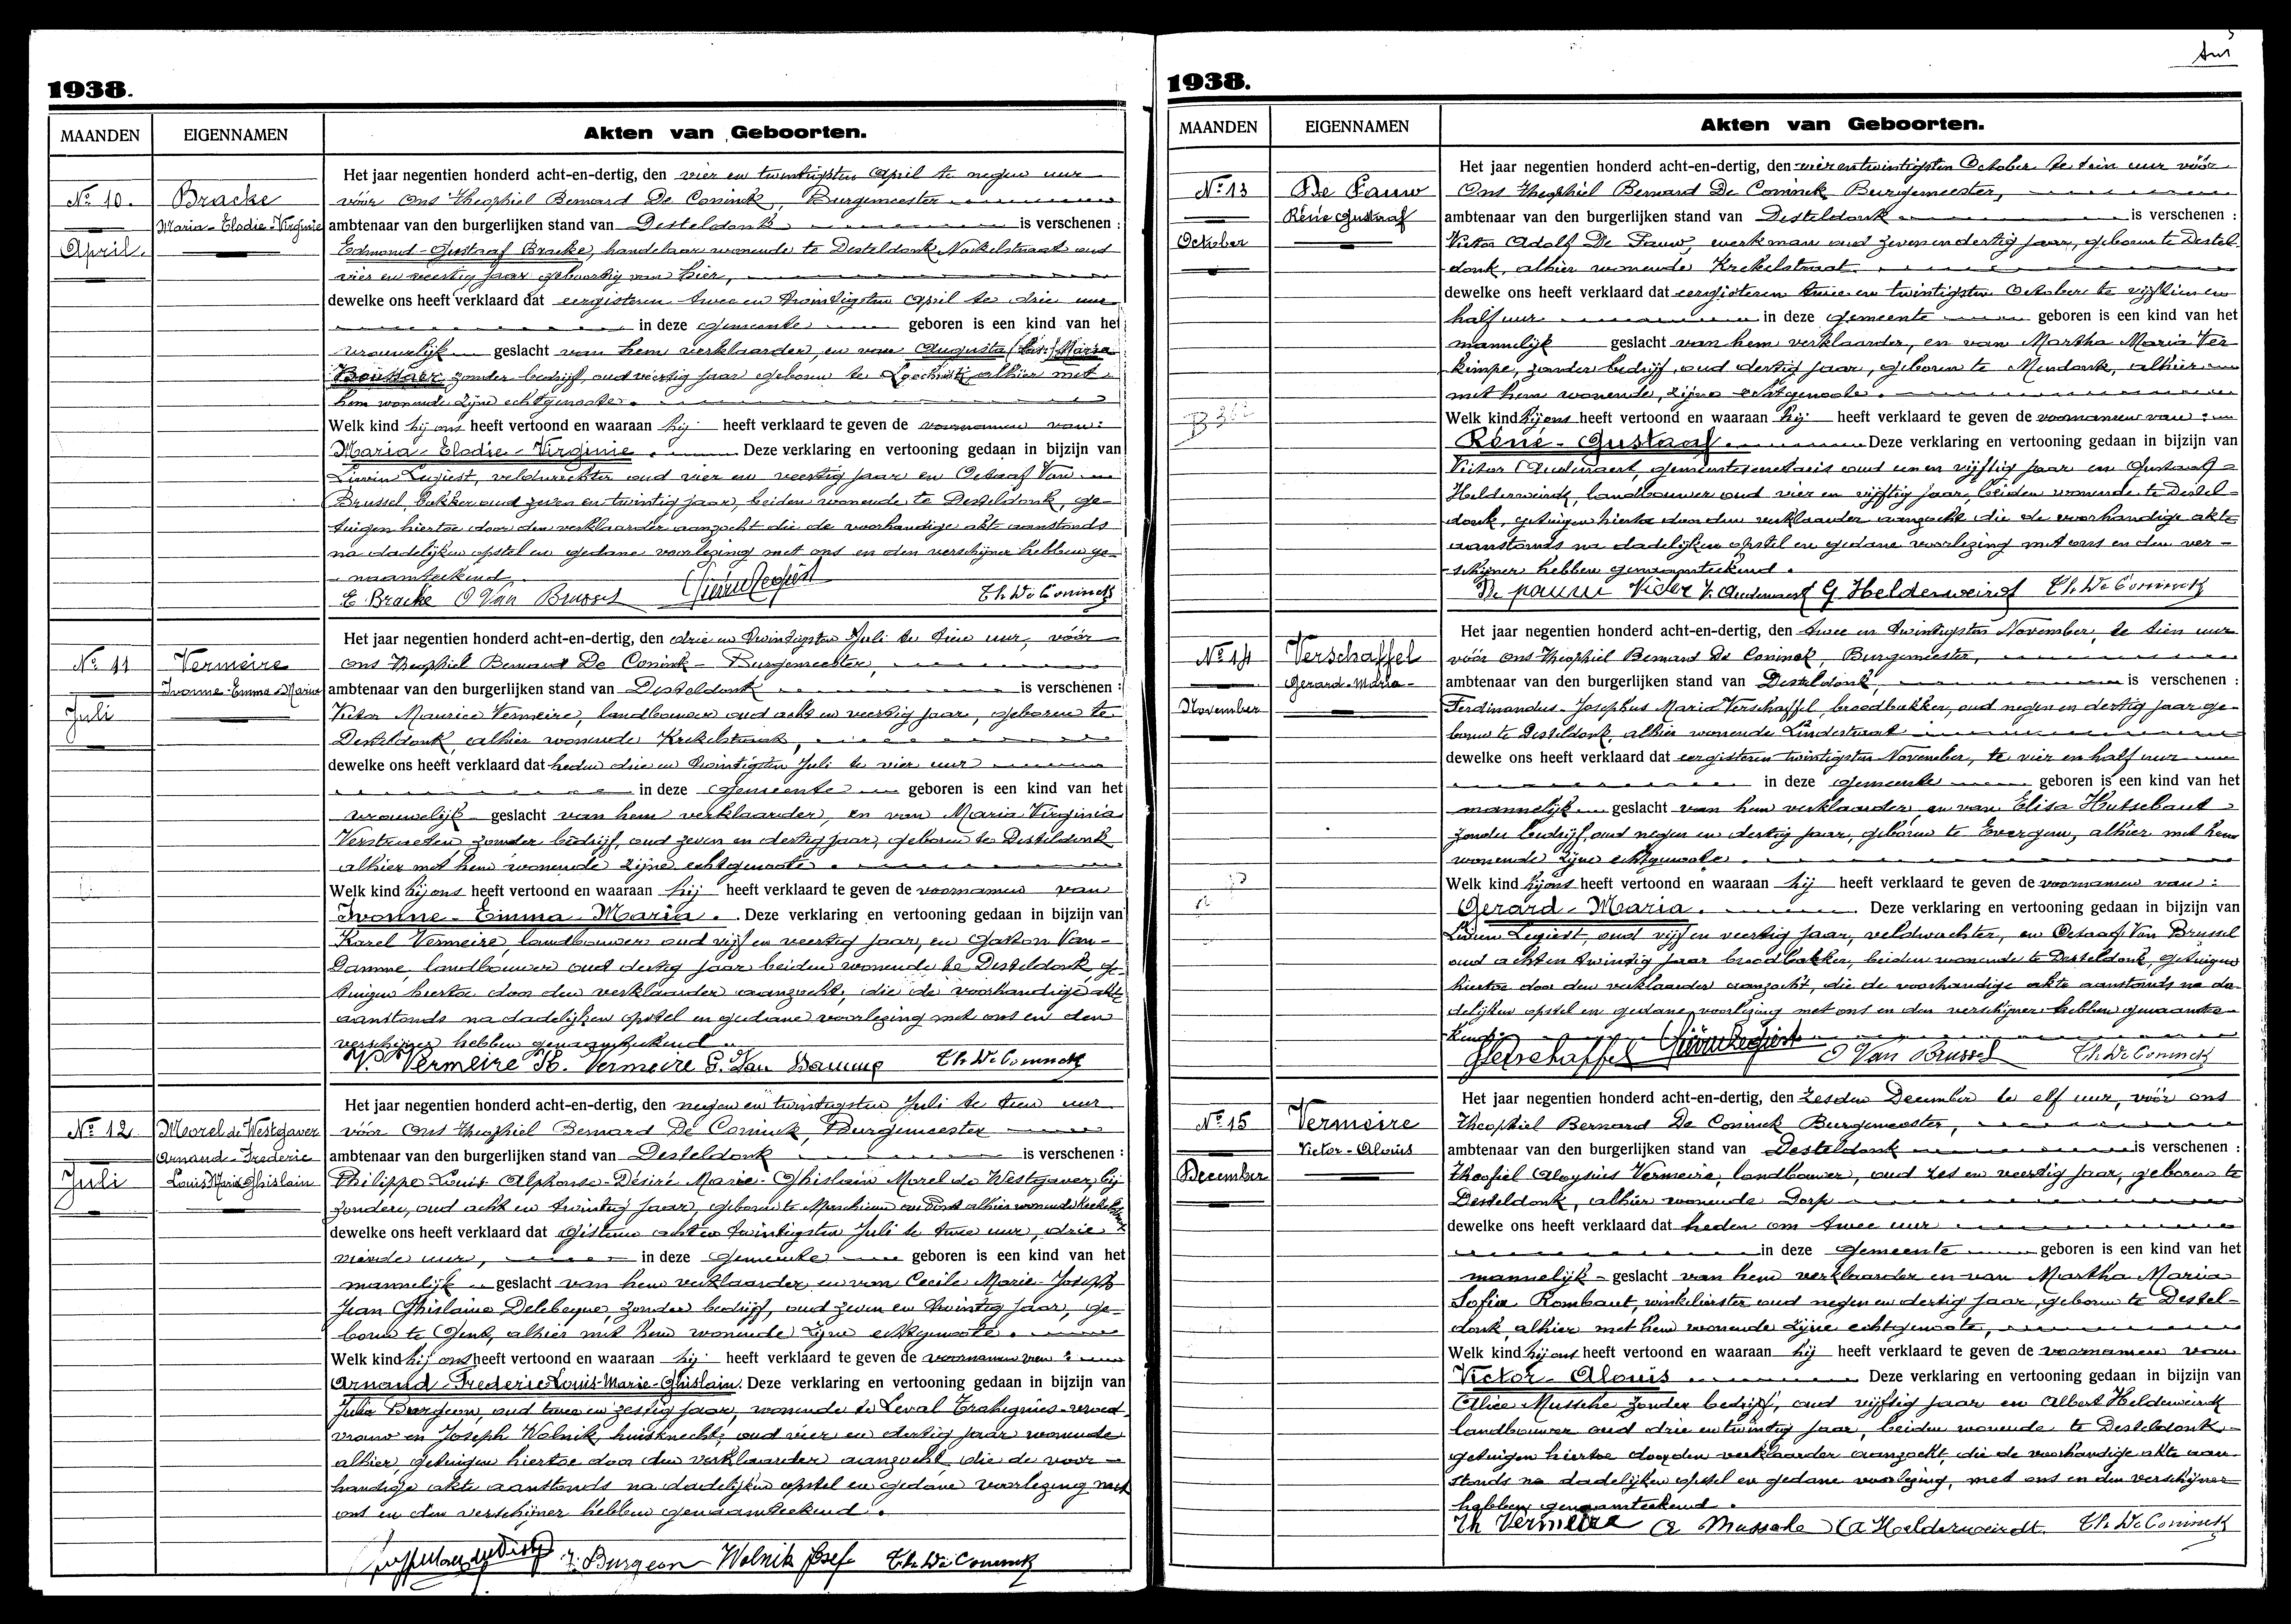 1938.
MAANDEN
EIGENNAMEN
Akten van Geboorten.
No 10.
April.
Bracke
Maria-Elodie-Virginie
Het jaar negentien honderd acht-en-dertig, den vier en twintigsten April te negen uur
vóór Ons Theophiel Bernard De Coninck, Burgemeester
ambtenaar van den burgerlijken stand van Desteldonk is verschenen :
Edmond-Gustaaf Bracke, handelaar wonende te Desteldonk oud
vier en veertig jaar geboortig van hier,
dewelke ons heeft verklaard dat eergisteren twee en twintigsten April te drie uur
in deze gemeente geboren is een kind van het
vrouwelijk geslacht van hem verklaarder, en van Augusta Maria
zonder bedrijf, oud veertig jaar geboren te Loochristi alhier met
hem wonende zijne echtgenoote.
Welk kind hij ons heeft vertoond en waaraan hij heeft verklaard te geven de voornamen van:
Maria-Elodie-Virginie. Deze verklaring en vertooning gedaan in bijzijn van
Livien Legiest, veldwachter oud vier en veertig jaar en Octaaf Van
Brussel, bakker oud zeven en twintig jaar, beiden wonende te Desteldonk, ge-
tuigen hiertoe door den verklaarder aanzocht die de voorhandige akte aanstonds
na dadelijken opstel en gedane voorlezing met ons en den verschijner hebben ge-
naamteekend
E. Bracke O Van Brussel Livien Legiest Th. De Coninck
No 11
Juli
Vermeire
Ivonne-Emma-Maria
Het jaar negentien honderd acht-en-dertig, den drie en twintigsten Juli te tien uur, vóór
ons Theophiel Bernard De Coninck-Burgemeester,
ambtenaar van den burgerlijken stand van Desteldonk is verschenen :
Victor Maurice Vermeire, landbouwer oud acht en veertig jaar, geboren te
Desteldonk, alhier wonende Krekelstraat,
dewelke ons heeft verklaard dat heden drie en twintigsten Juli te vier uur
in deze gemeente geboren is een kind van het
vrouwelijk geslacht van hem verklaarder, en van Maria Virginia
Verstraeten zonder bedrijf, oud zeven en dertig jaar, geboren te Desteldonk
alhier met hem wonende zijne echtgenoote.
Welk kind hij ons heeft vertoond en waaraan hij heeft verklaard te geven de voornamen van
Ivonne-Emma-Maria. Deze verklaring en vertooning gedaan in bijzijn van
Karel Vermeire, landbouwer oud vijf en veertig jaar, en Gaston Van-
Damme, landbouwer oud dertig jaar beiden wonende te Desteldonk, ge-
tuigen hiertoe door den verklaarder aanzocht, die de voorhandige akte
aanstonds na dadelijken opstel en gedane voorlezing met ons en den
verschijner hebben genaamteekend
V. Vermeire K. Vermeire G. Van Damme Th. De Coninck
No 12
Juli
Morel de Westgaver
Arnaud-Frederic
Louis Marie Ghislain
Het jaar negentien honderd acht-en-dertig, den negen en twintigsten Juli te tien uur
vóór Ons Theophiel Bernard De Coninck, Burgemeester
ambtenaar van den burgerlijken stand van Desteldonk is verschenen :
Philippe Louis Alphonse-Désiré Marie-Ghislain Morel de Westgaver, bij-
zondere, oud acht en twintig jaar, geboren te alhier wonende
dewelke ons heeft verklaard dat gisteren acht en twintigsten Juli te twee uur, drie
vierde uur, in deze gemeente geboren is een kind van het
mannelijk geslacht van hem verklaarder, en van Cecile Marie-Joseph
Jean Ghislaine Delebecque, zonder bedrijf, oud zeven en twintig jaar, ge-
boren te Gent, alhier met hem wonende zijne echtgenoote.
Welk kind hij ons heeft vertoond en waaraan hij heeft verklaard te geven de voornamen van :
Arnaud-Frederic Louis-Marie-Ghislain. Deze verklaring en vertooning gedaan in bijzijn van
Julia Burgeon, oud twee en zestig jaar, wonende te Leval Trahegnies-vroed-
vrouw en Joseph Wolnik, huisknecht, oud vier en dertig jaar wonende
alhier, getuigen hiertoe door den verklaarder aanzocht, die de voor-
handige akte aanstonds na dadelijken opstel en gedane voorlezing met
ons en den verschijner hebben genaamteekend.
J. Burgeon Wolnik Josef Th. De Coninck
1938.
MAANDEN
EIGENNAMEN
Akten van Geboorten.
No 13
October
De Pauw
Réné Gustaaf
Het jaar negentien honderd acht-en-dertig, den vier en twintigsten October te tien uur vóór
Ons Theophiel Bernard De Coninck Burgemeester,
ambtenaar van den burgerlijken stand van Desteldonk is verschenen :
Victor Adolf De Pauw, werkman oud zeven en dertig jaar, geboren te Destel-
donk, alhier wonende Krekelstraat.
dewelke ons heeft verklaard dat eergisteren twee en twintigsten October te vijftien en
half uur in deze gemeente geboren is een kind van het
mannelijk geslacht van hem verklaarder, en van Martha Maria Ver
kimpe, zonder bedrijf, oud dertig jaar, geboren te Mendonk, alhier
met hem wonende, zijne echtgenoote.
Welk kind hij ons heeft vertoond en waaraan hij heeft verklaard te geven de voornamen van :
Réné-Gustaaf. Deze verklaring en vertooning gedaan in bijzijn van
Victor Audenaert, gemeentesecretaris oud een en vijftig jaar en Gustaaf
Helderweirdt, landbouwer oud vier en vijftig jaar, beiden wonende te Destel-
donk, getuigen hiertoe door den verklaarder aanzocht die de voorhandige akte
aanstonds na dadelijken opstel en gedane voorlezing met ons en den ver-
schijner hebben genaamteekend.
De pauw Victor V. Audenaert G Helderweirdt Th. De Coninck
No 14
November
Verschaffel
Gerard-Maria-
Het jaar negentien honderd acht-en-dertig, den twee en twintigsten November, te tien uur
vóór Ons Theophiel Bernard De Coninck, Burgemeester,
ambtenaar van den burgerlijken stand van Desteldonk, is verschenen :
Ferdinandus-Josephus Maria Verschaffel, broodbakker, oud negen en dertig jaar ge-
boren te Desteldonk, alhier wonende Lindestraat
dewelke ons heeft verklaard dat eergisteren twintigsten November, te vier en half uur
in deze gemeente geboren is een kind van het
mannelijk geslacht van hem verklaarder en van Elisa Hutsebaut
zonder bedrijf, oud negen en dertig jaar, geboren te Evergem, alhier met hem
wonende zijne echtgenoote.
Welk kind hij ons heeft vertoond en waaraan hij heeft verklaard te geven de voornamen van :
Gerard-Maria. Deze verklaring en vertooning gedaan in bijzijn van
Livien Legiest, oud vijf en veertig jaar, veldwachter, en Octaaf Van Brussel
oud acht en twintig jaar broodbakker, beiden wonende te Desteldonk, getuigen
hiertoe door den verklaarder aanzocht, die de voorhandige akte aanstonds na da-
delijken opstel en gedane voorlezing met ons en den verschijner hebben genaamtee-
kend
Verschaffel Livien Legiest O Van Brussel Th. De Coninck
No 15
December
Vermeire
Victor-Alouis
Het jaar negentien honderd acht-en-dertig, den zesden December te elf uur, vóór ons
Theophiel Bernard De Coninck Burgemeester,
ambtenaar van den burgerlijken stand van Desteldonk is verschenen :
Theofiel Aloysius Vermeire, landbouwer, oud zes en veertig jaar, geboren te
Desteldonk, alhier wonende Dorp
dewelke ons heeft verklaard dat heden om twee uur
in deze gemeente geboren is een kind van het
mannelijk geslacht van hem verklaarder en van Martha Maria
Sofia Rombaut, winkelierster oud negen en dertig jaar, geboren te Destel-
donk, alhier met hem wonende zijne echtgenoote,
Welk kind hij ons heeft vertoond en waaraan hij heeft verklaard te geven de voornamen van
Victor-Alouis Deze verklaring en vertooning gedaan in bijzijn van
Alice Mussche zonder bedrijf, oud vijftig jaar en Albert Helderweirdt
landbouwer oud drie en twintig jaar, beiden wonende te Desteldonk
getuigen hiertoe door den verklaarder aanzocht, die de voorhandige akte aan-
stonds na dadelijken opstel en gedane voorlezing, met ons en den verschijner
hebben genaamteekend.
Th Vermeire A Mussche A Helderweirdt Th. De Coninck